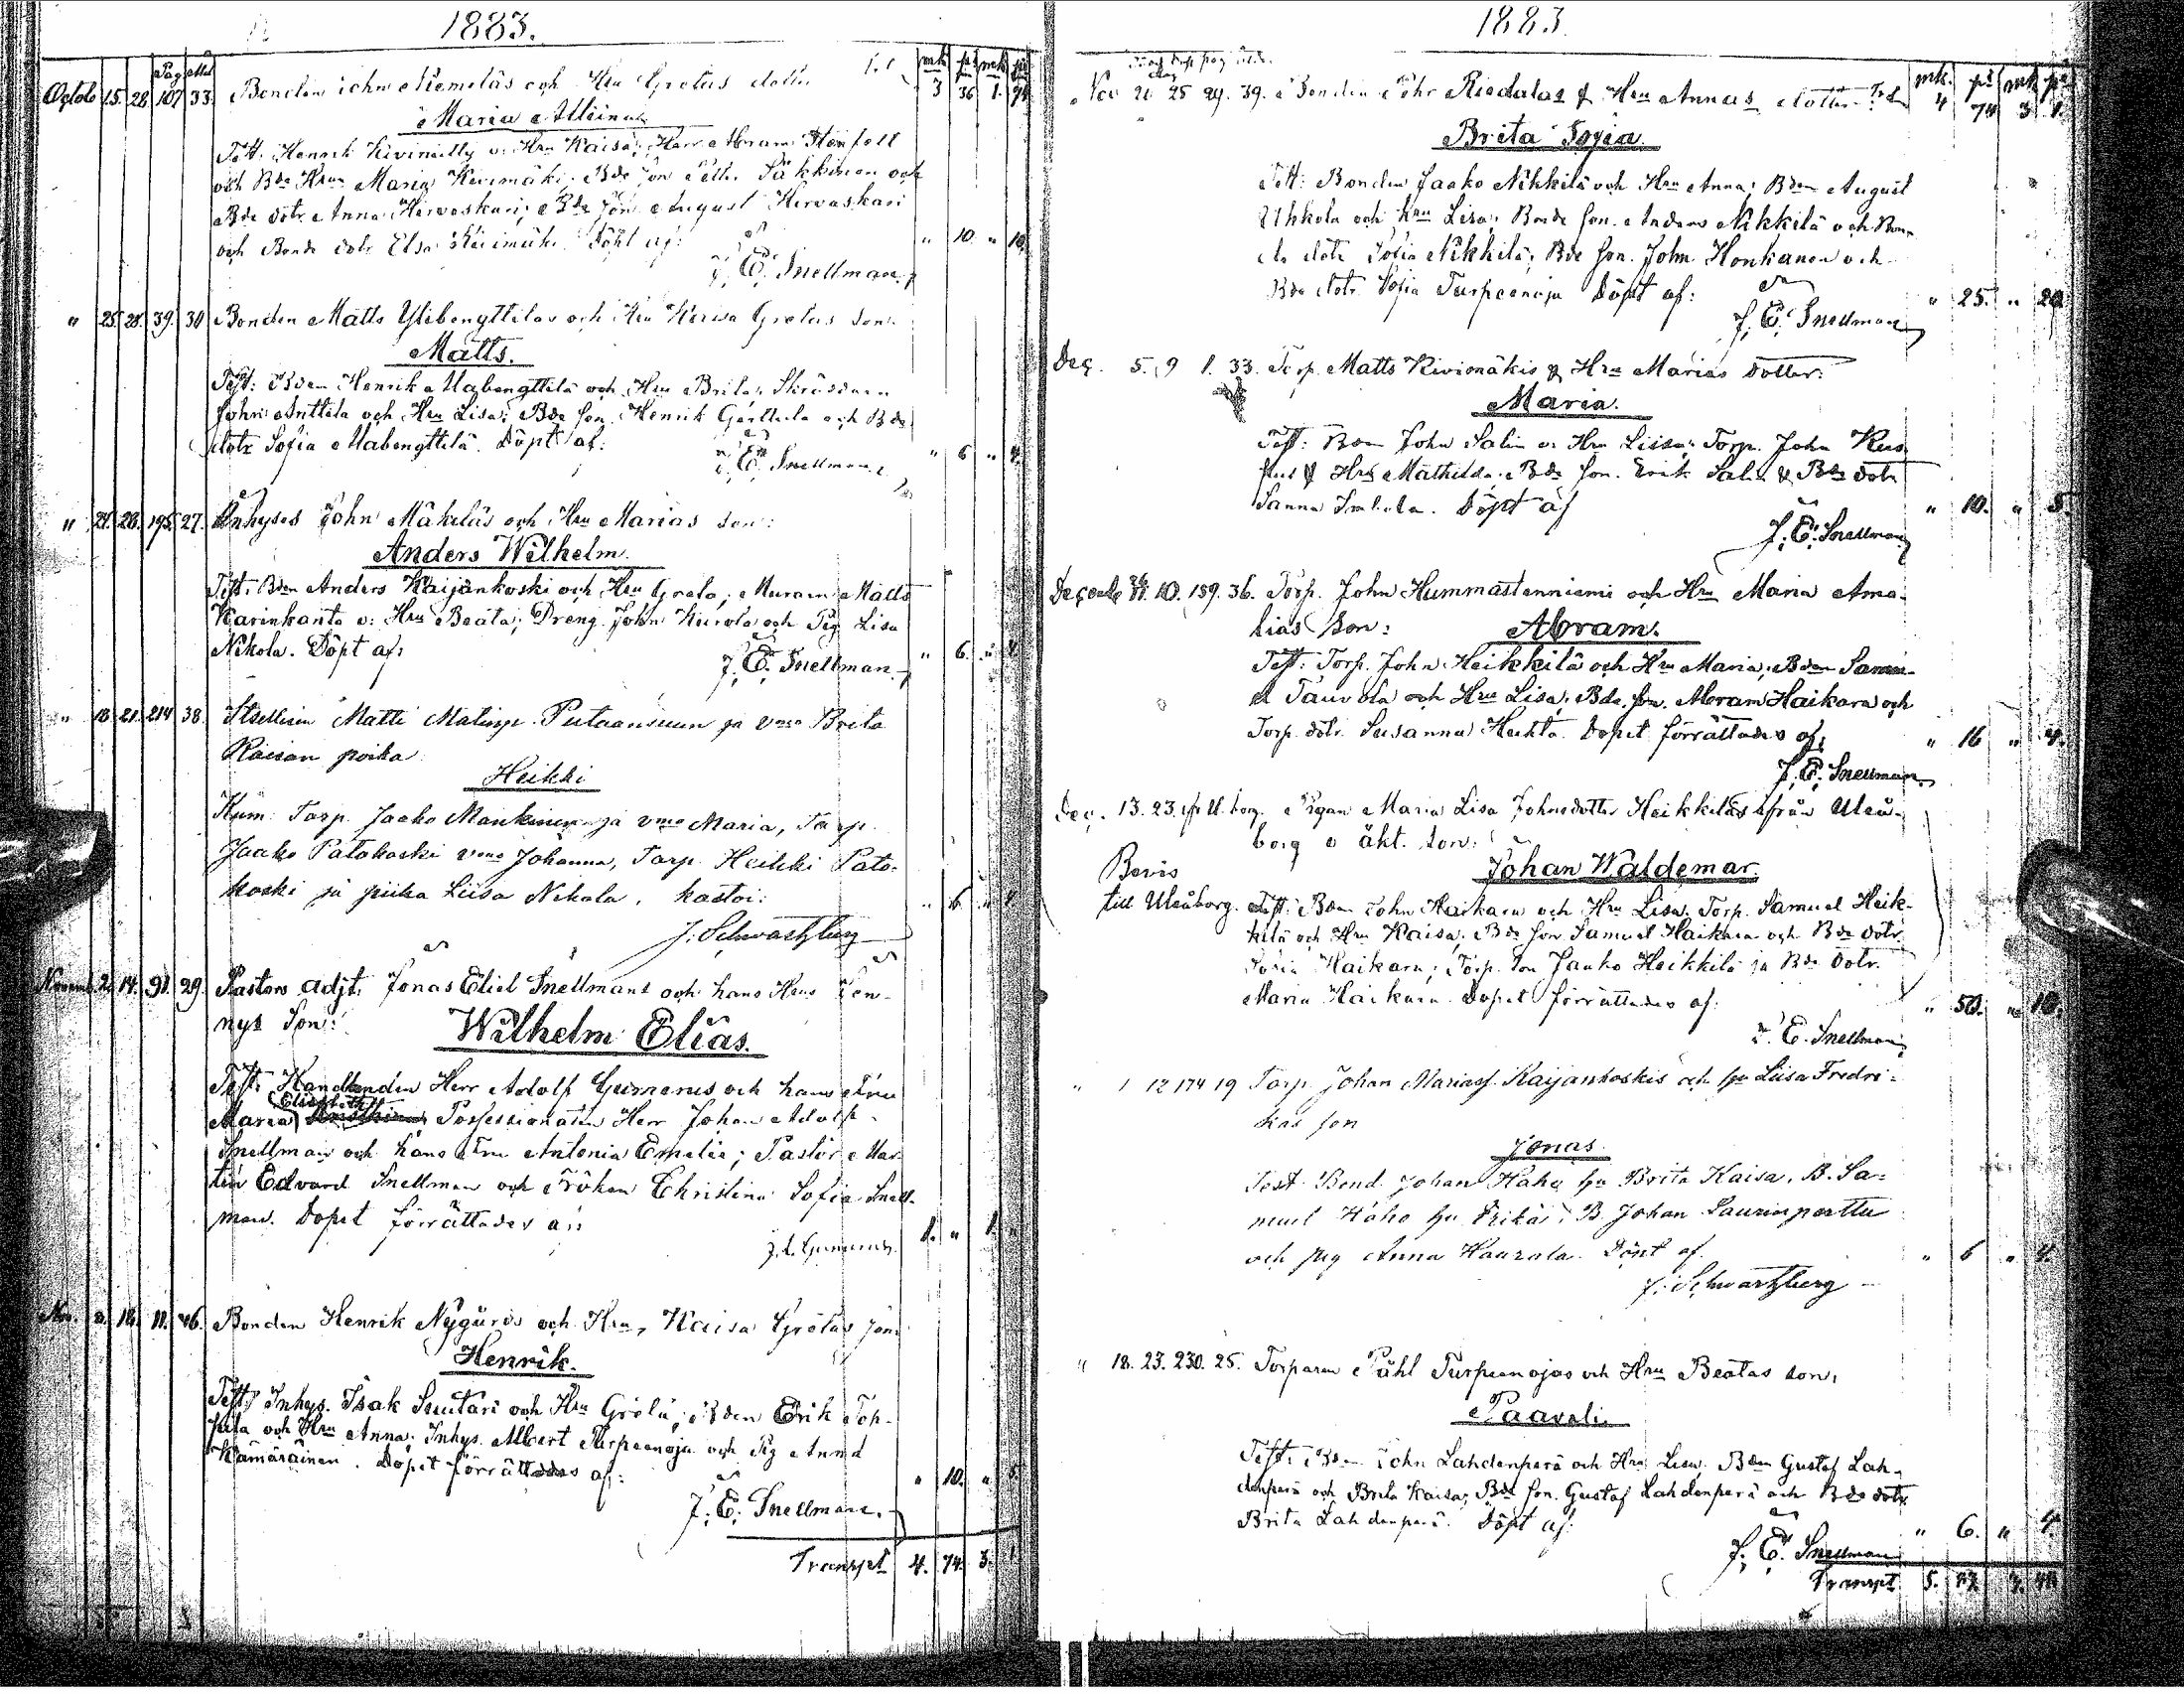 1883.
Pag mk p mk p
Octob. 15. 28. 107. 33. Bonden John Niemeläs och Hru Gretas dotter 3 36 1.
Maria
Test: Henrik o. Hru Kaisa; Herr Abram
och Bde Hrun Maria Kivimäki; Bde son Säkkinen och
Bde dotr Anna Hirvaskari; Bde son August Hirvaskari
och Bonde dotr Elsa Kivimäki. Döpt af: " 10. " 10.
J. E. Snellman.
" 25. 28. 39. 30 Bonden Matts Ylibengttilas och Hru Greta son:
Matts.
Test: Bden Henrik Alabengttilä och Hru Brita; Skräddaren
John Anttila och Hru Lisa; Bde son. Henrik och Bde
dotr Sofia Alabengttilä. Döpt af: " 6 " 4.
J. E. Snellman.
" 21. 28. 195. 27. Inhyses John Mäkeläs och Hru Marias son:
Anders Wilhelm.
Test. Bden Anders Kaijankoski och Hru Greta; Muraren Matts
Karinkanta o: Hru Beata; Dreng. John och Pig Lisa
Nikola. Döpt af: " 6. " 4
J. E. Snellman.
" 18. 21. 214 38. Itsellisen Matti Matinp. Putaansuun ja vmo Brita
Kaisan poika
Heikki
Kum: Torp. Jaako Mankinen ja vmo Maria, Torp.
Jaako Patokoski vmo Johanna, Torp. Heikki Pato-
koski ja piika Liisa Nikola. kastoi: " 6. " 4
J. Schwartzberg
Novemb. 2. 14. 91. 29. Pastors adjt. Jonas Eliel Snellmans och hans Hrus Fen-
nys Son:
Wilhelm Elias.
Test: Handlanden Herr Adolf Gummerus och hans Fru
Elisabeth
Maria Possessionaten Herr Johan Adolf
Snellman och hans Fru Antonia Emelie; Pastor Mar-
tin Edvard Snellman och Fröken Christina Sofia Snell-
man. Dopet förrättades af: 1. " 1. "
J. A. Gummerus.
Nov. 46. Bonden Henrik Nygårds och Hru, Kaisa Gretas son
Henrik.
Test; Inhys. Isak Suutari och Hru Greta; Bden Erik Top-
pila och Hru Anna; Inhys. Albert Turpeenoja och Pig Anna
Kämäräinen. Dopet förrättades af: " 10. " 5.
J. E. Snellman.
Transpt 4. 74. 3. 1
1883.
mk. pi mk. pi
Nov 20 25 29. 39. Bonden Riedalas & Hru Annas dotter 4 74 3 1.
Brita Sofia.
Test: Bonden Jaako Nikkilä och Hru Anna; Bden August
Uhkola och Hru Lisa; Bonde son. Anders Nikkilä och Bon-
de dotr Sofia Nikkilä; Bde son. John Honkanen och
Bde dotr. Sofia Turpeenoja Döpt af: " 25. " 20
J. E. Snellman
Dec. 5. 9 1. 33. Torp. Matts Kivimäkis & Hru Marias dotter:
Maria.
Test: Bden John Salin o. Hru Lissa; Torp. John
& Hru Mathilda; Bde son. Erik Salin & Bde dotr
Sanna Döpt af " 10. " 5.
J. E. Snellman
Decemb. 10. 159. 36. Torp. John Hummastenniemi och Hru Maria Ama-
lias son: Abram.
Test: Torp. John Heikkilä och Hru Maria; Bden Samu-
el Tauvola och Hru Lisa; Bde son. Abram Haikara och
Torp. dotr. Susanna Huhta. Dopet förrättades af; " 16 " 4.
J. E. Snellman
Dec. 13. 23. fr U. borg. Pigan Maria Lisa Johnsdotter Heikkiläs från Uleå-
borg o äkt. son:
Bevis
Johan Waldemar.
till Uleåborg. Test: Bden John Haikara och Hru Lisa; Torp. Samuel Heik-
kilä och Hru Kaisa; Bde son Samuel Haikara och Bde dotr.
Sofia Haikara; Torp. son Jaako Heikkilä ja Bde dotr.
Maria Haikara. Dopet förrättades af: " 50. " 10.
J. E. Snellman
" 1 12 174 19 Torp. Johan Kaijankoskis och hu Liisa Fredri-
kas son
Jonas
Test. Bond. Johan Haho hu Brita Kaisa, B. Sa-
muel Haho hu Erika, B. Johan Laurinperttu
och pig Anna Haarala. Döpt af. " 6 " 4.
J. Schwartzberg
" 18. 23. 230. 25. Torparen Påhl Turpeenojas och Hru Beatas son:
Paavali
Test: Bden John Lahdenperä och Hru Lisa; Bden Gustaf Lah-
denperä och Brita Kaisa; Bde son. Gustaf Lahdenperä och Bde dotr.
Brita Lahdenperä. Döpt af: " 6. " 4
J. E. Snellman
Transpt 5.